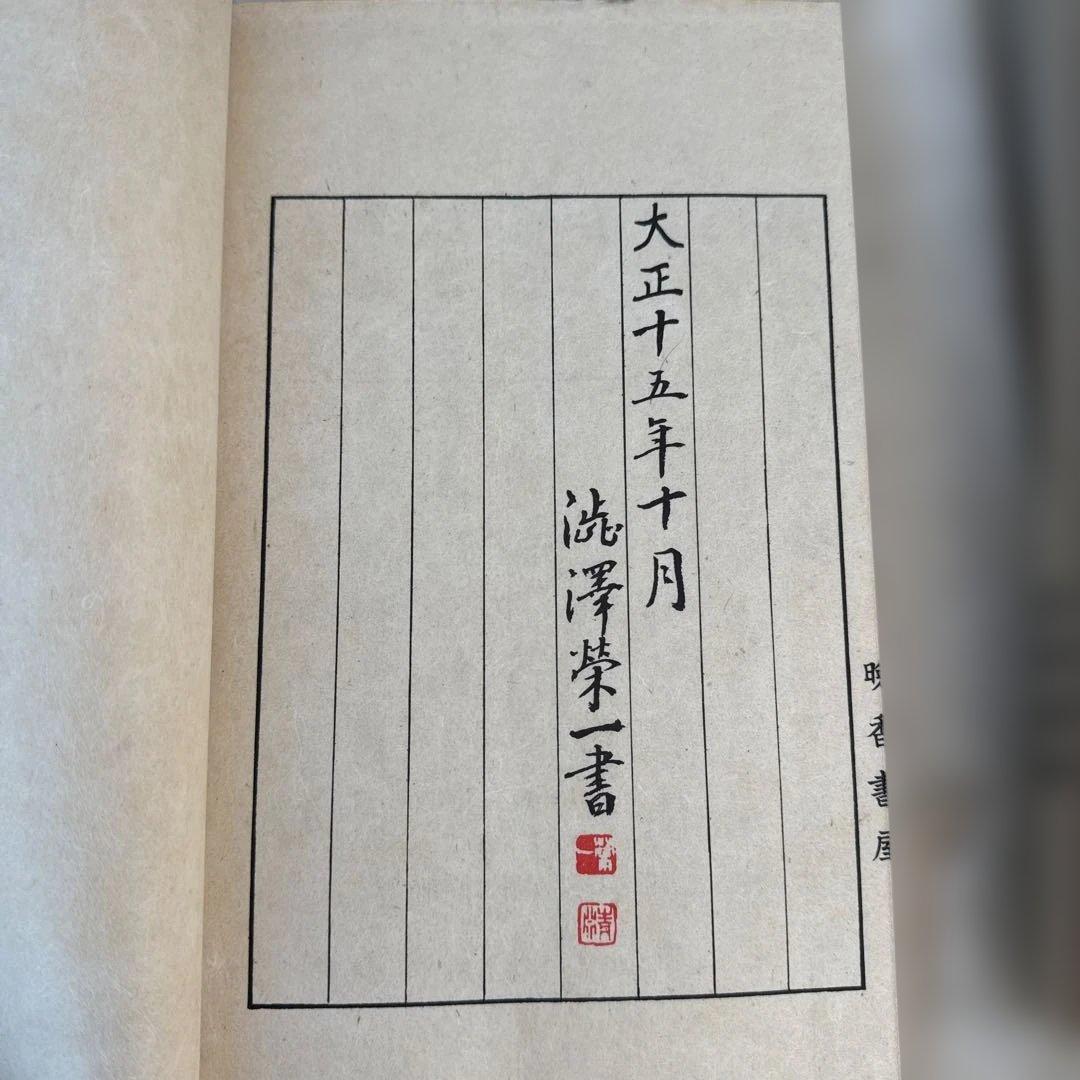 晩香書屋
大正十五年十月
澁澤榮一書
榮一